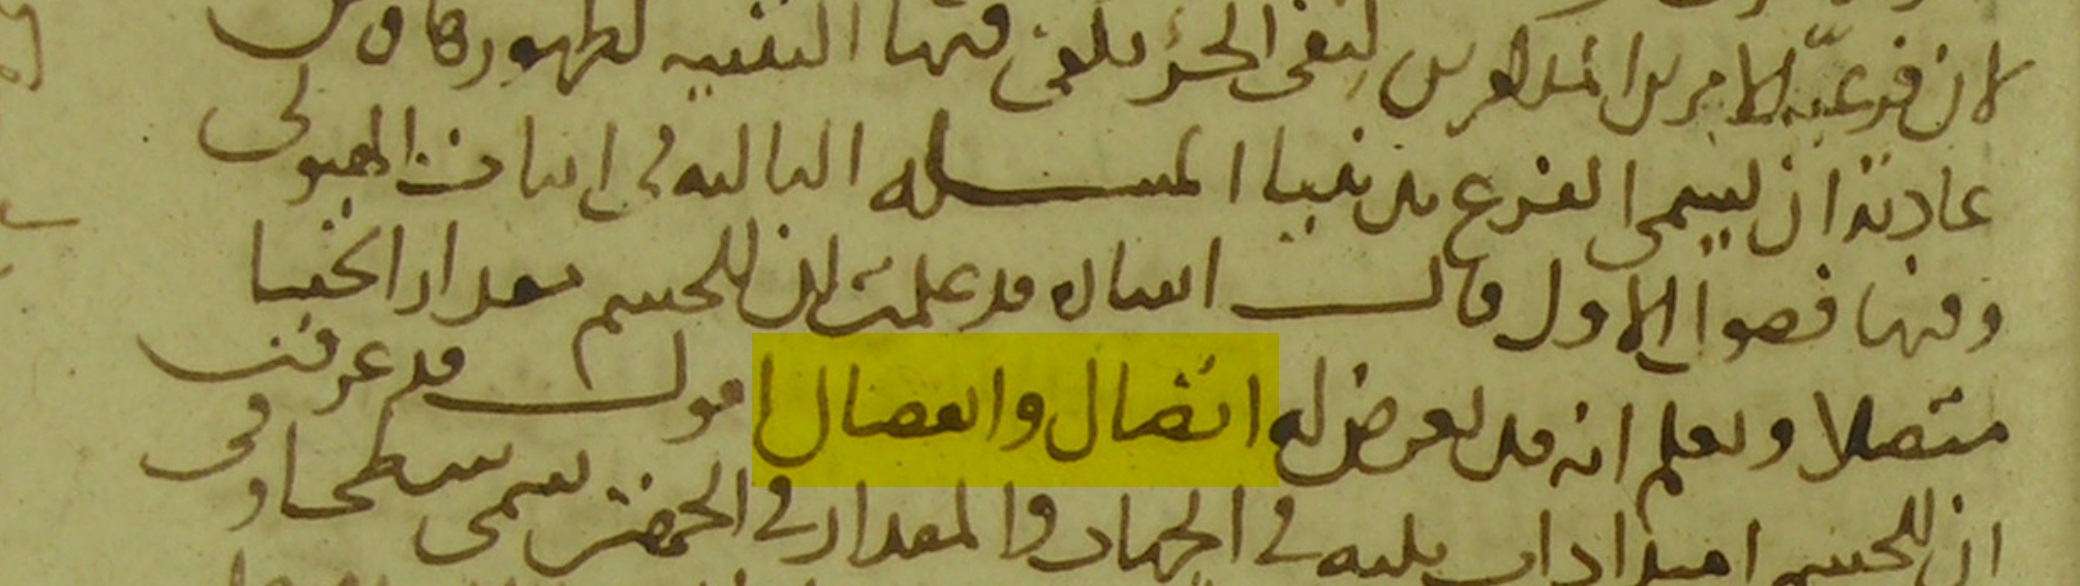 لان فرعيه الامرين المذكورين لنفى الجزء يكفى فيها التنبيه لظهورها و
عادته ان يسمى الفرع تذنيبا المسله التاليه فى اثبات الهيولى
وفيها فصول الاول قال اشاره قد علمت ان للجسم مقدارا ثخينا
متصلا وتعلم انه قد يعرض له اتصال وانفصال اقول قد عرفت
ان للجسم امتدادات ثلثه فى الجهات والمقدار فى الجهتين يسمى سطحا وفى